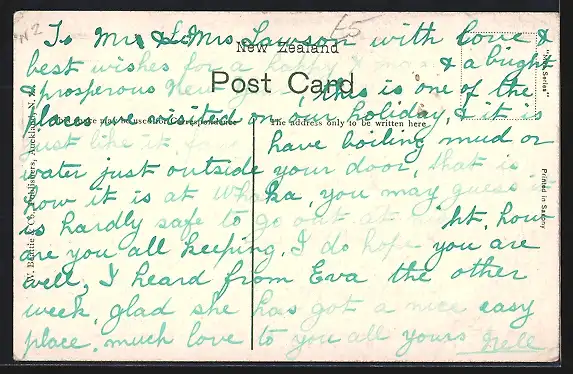 NZ
£5
To Mr & Mrs Lawson with love &
New Zealand
best wishes for a happy Xmas & a bright
Post Card
& prosperous New Year, this is one of the
places we visited on our holiday, & it is
The address only to be written here
just like it, have boiling mud or
water just outside your door, that is
how it is at Whaka, you may guess it
is hardly safe to go out at night, how
are you all keeping. I do hope you are
well, I heard from Eva the other
week, glad she has got a nice easy
place. much love to you all yours Nell
W. Beattie & Co., Publishers, Auckland, N. Z.
Printed in Saxony
Series"